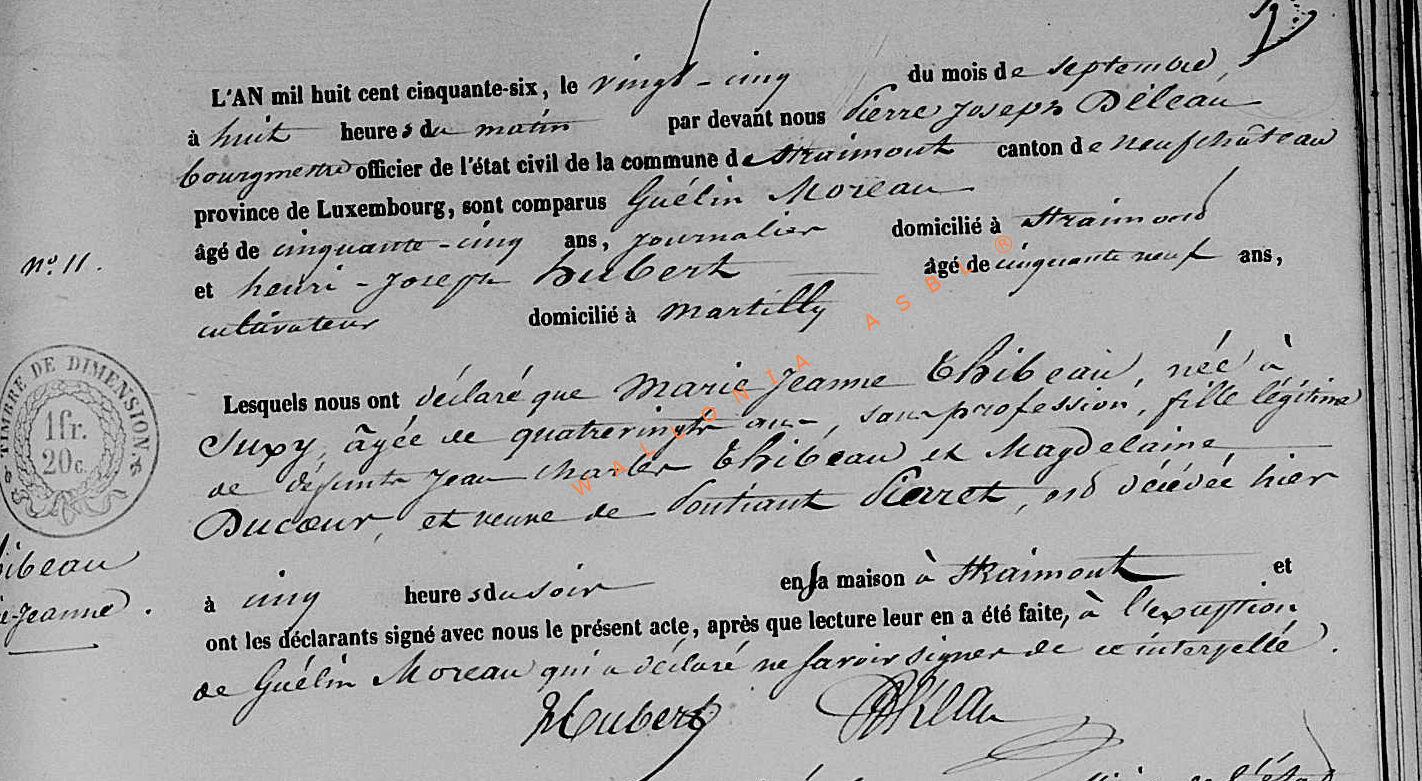 L'AN mil huit cent cinquante-six, le vingt-cinq du mois de septembre,
à huit heures du matin par devant nous Pierre Joseph Déleau
bourgmestre officier de l'état civil de la commune de Straimont canton de neufchâteau
province de Luxembourg, sont comparus Guélin Moreau
âgé de cinquante-cinq ans, journalier domicilié à Straimont
n.° 11.
et henri-Joseph Hubert âgé de cinquante neuf ans,
cultivateur domicilié à Martilly
Lesquels nous ont déclaré que Marie Jeanne Thibeau, née à
Suxy, âgée de quatrevingts ans, sans profession fille légitime
de défunts Jean Charles Thibeau et Magdelaine
Ducœur, et veuve de Pierret, est décédée hier
TIMBRE DE DIMENSION.
1fr.
20c.
WALLONIA ASBL ®
ibeau
Jeanne.
à cinq heures du soir en sa maison à Straimont et
ont les déclarants signé avec nous le présent acte, après que lecture leur en a été faite, à l'exception
de Guélin Moreau qui a déclaré ne savoir signer de ce interpellé.
Hubert Déleau